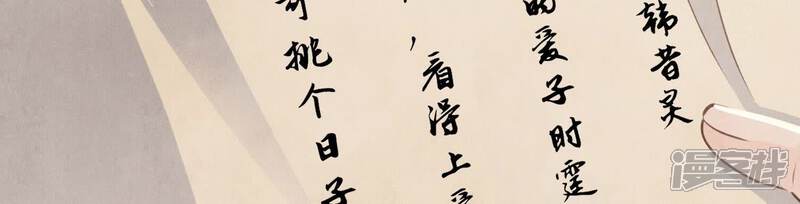 韩昔灵
的爱子时霆
，看得上
可挑个日子
漫客栈